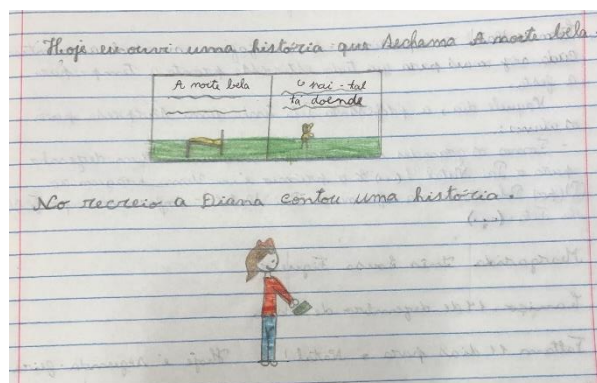 Hoje eu ouvi uma história que sechama A noite bela.
A noite bela
o pai-tal
tá doende
No recreio a Diana contou uma história.